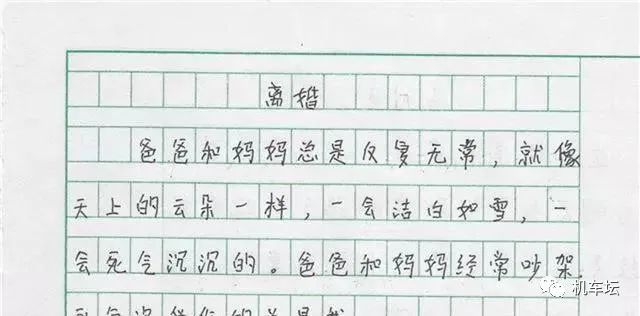 离婚
爸爸和妈妈总是反复无常，就像
天上的云朵一样，一会洁白如雪，一
会死气沉沉的。爸爸和妈妈经常吵架.
机车坛